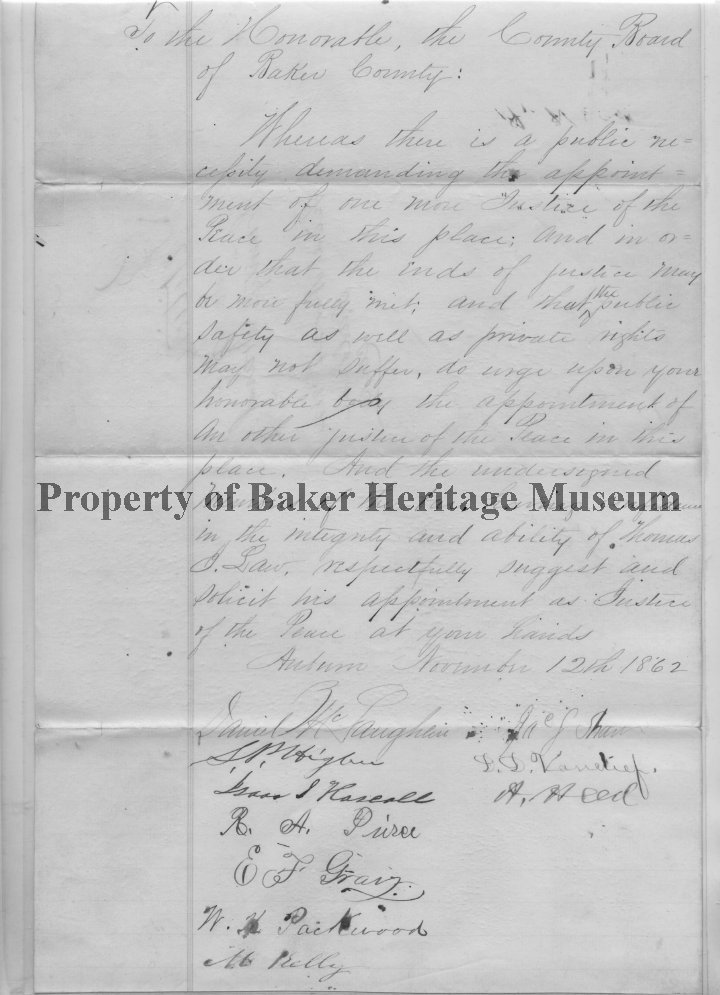 To the Honorable, the County Board
of Baker County:
Whereas there is a public ne=
cessity demanding the appoint=
ment of one more Justice of the
Peace in this place; and in or=
der that the ends of justice may
be more fully met; and that the public
safety as well as private rights
may not suffer, do urge upon your
honorable body the appointment of
an other justice of the Peace in this
place. And the undersigned
Property of Baker Heritage Museum
in the integrity and ability of Thomas
J. Law, respectfully suggest and
solicit his appointment as Justice
of the Peace at your hands
Auburn November 12th 1862
Daniel McLaughlin
S. P. Higbee
L. D. Vandief.
Isaac J Hascall
A. Heed
R. A. Pierce
E F Gray.
W. H Packwood
M Kelly